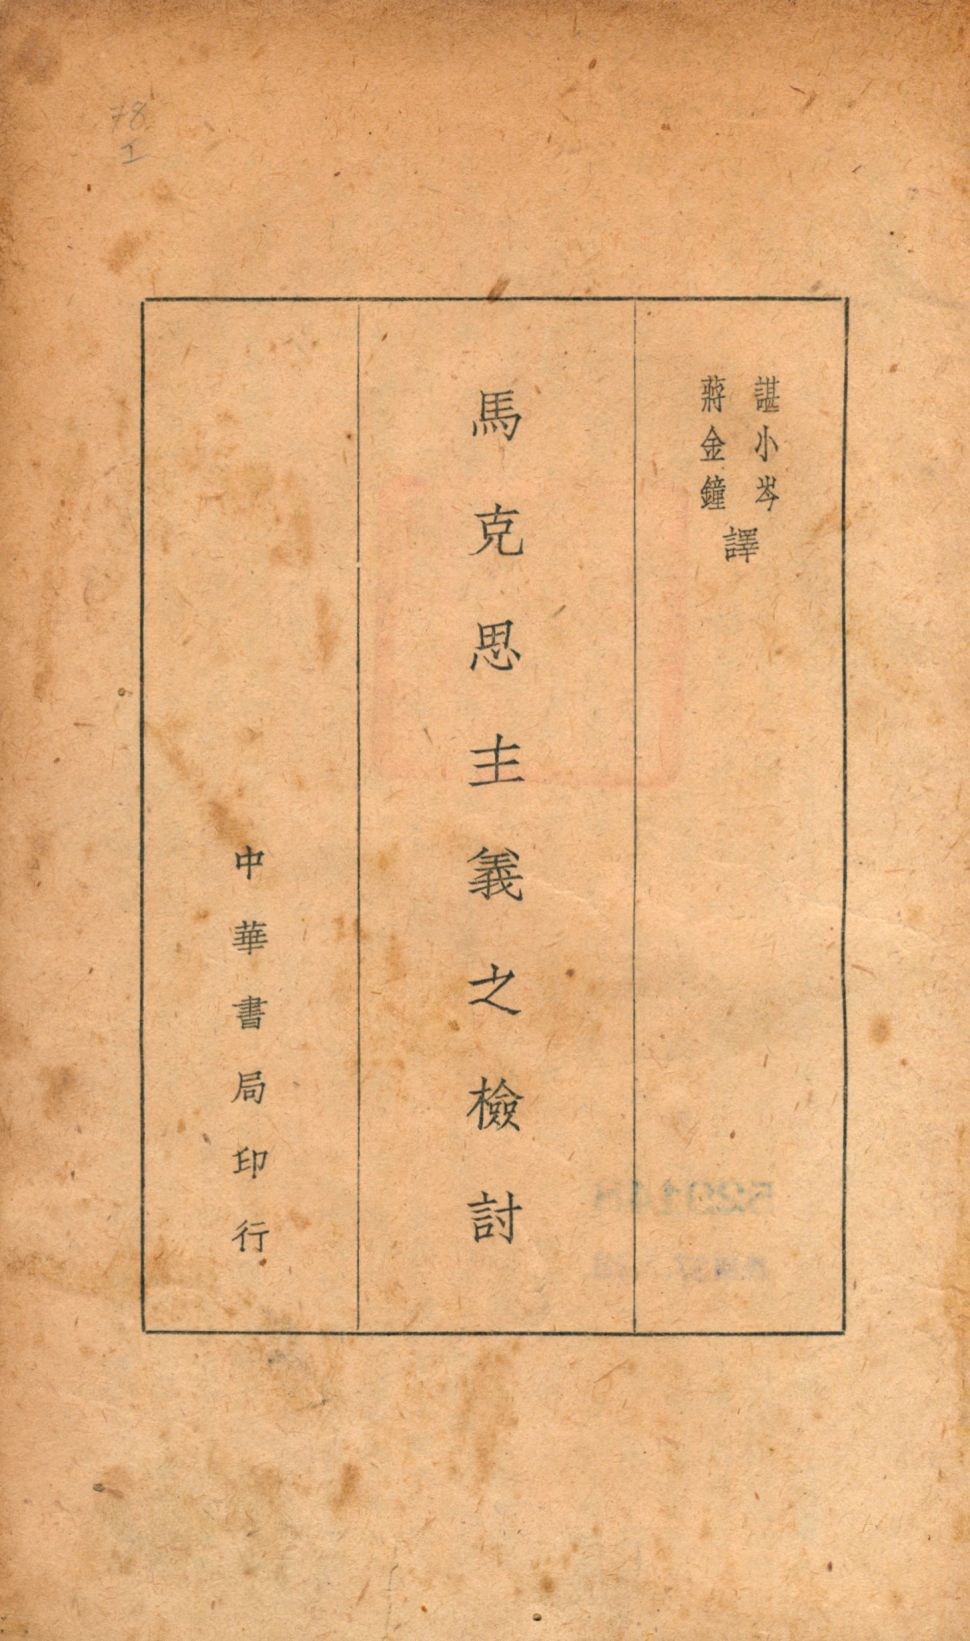 諶小岑
蔣金鐘
譯
馬克思主義之檢討
中華書局印行
78